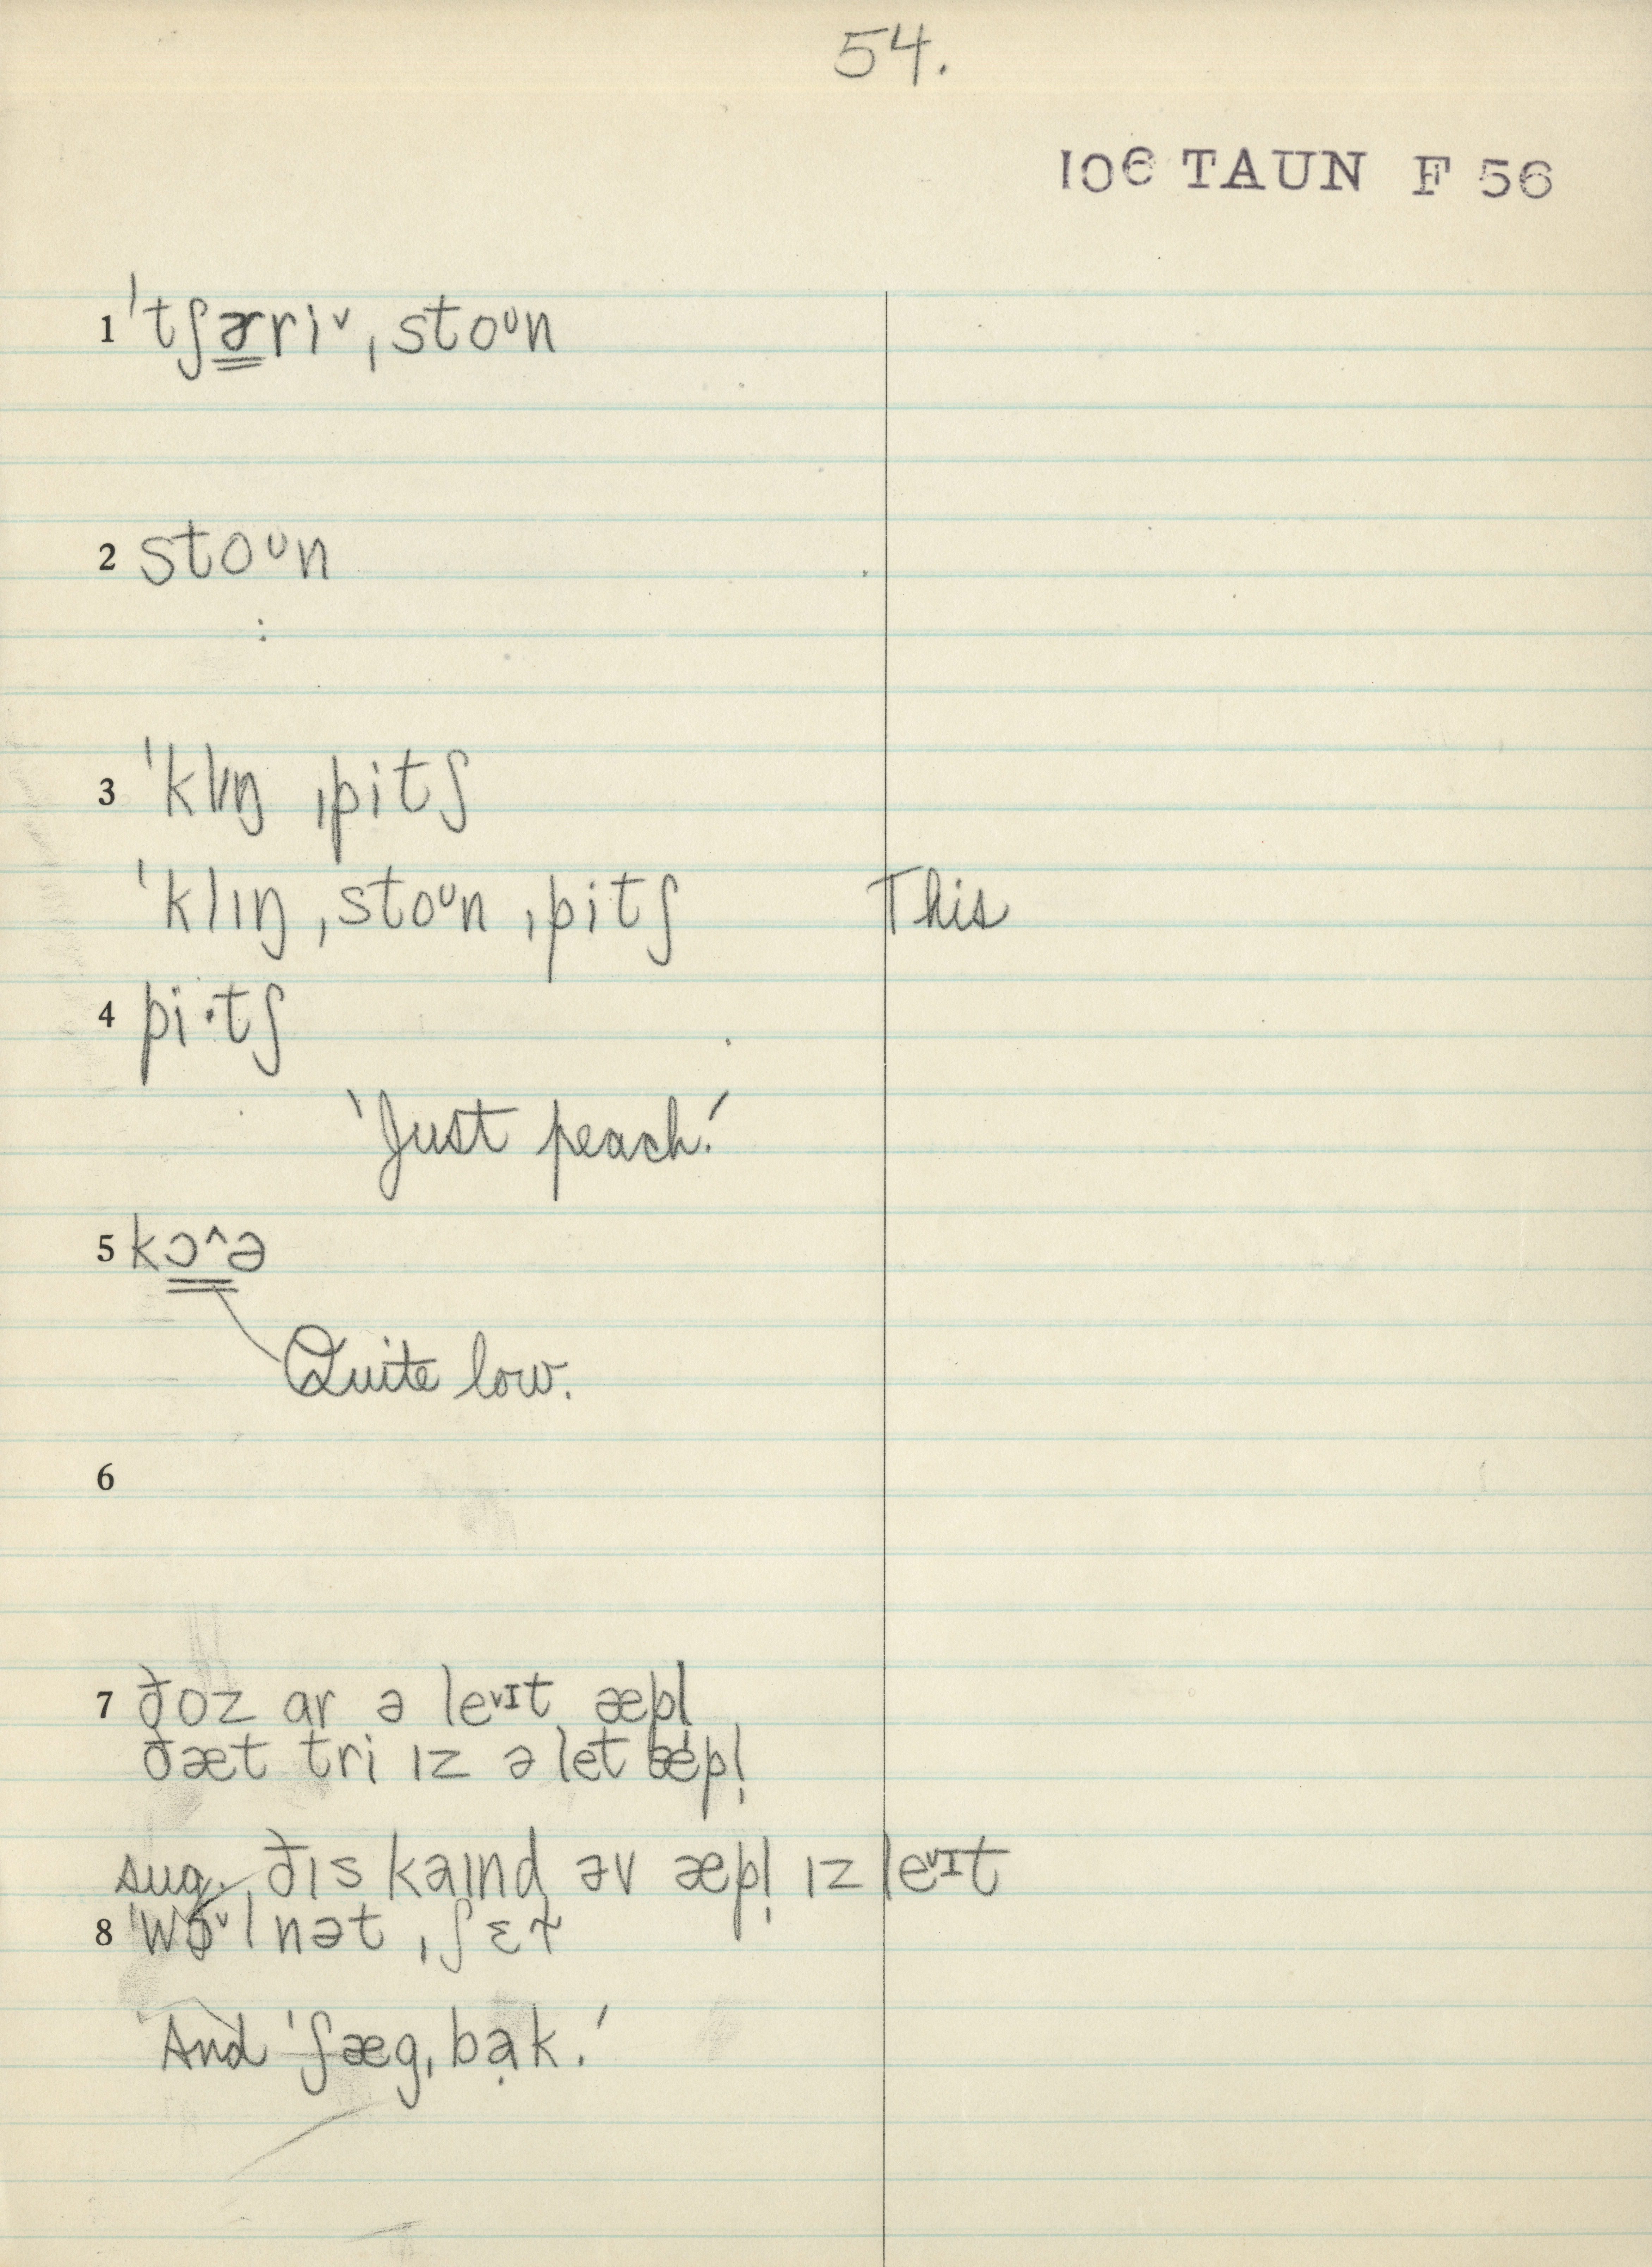 54.
106 TAUN F 56
1 ˈtʃɚri˅ ˌstoᶷn
2 stoᶷn
3 ˈklɪŋ ˌpitʃ
ˈklɪŋ ˌstoᶷn ˌpitʃ This
4 pi·tʃ
'Just peach.'
5 kɔ^ə
Quite low.
6
7 ðoz ar ə le˅ɪt æpl
ðæt tri ɪz ə let æpl̩
sug. ðɪs kaɪnd əv æpl̩ ɪz le˅ɪt
8 ˈwɔ˅lnət ˌʃɛɫ
'And ˈʃægˌbạk.'